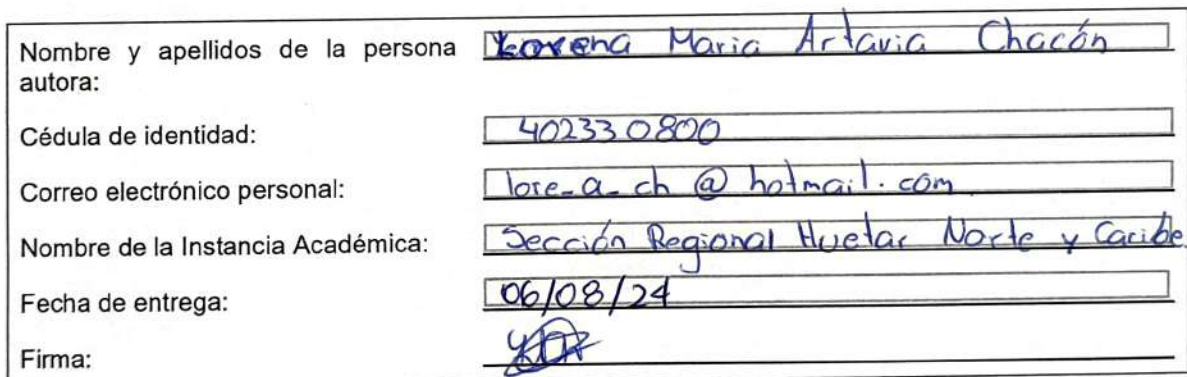 Nombre y apellidos de la persona autora: Lorena Maria Artavia Chacón
Cédula de identidad: 402330800
Correo electrónico personal: lore_a_ch @ hotmail.com
Nombre de la Instancia Académica: Sección Regional Huetar Norte y Caribe
Fecha de entrega: 06/08/24
Firma: